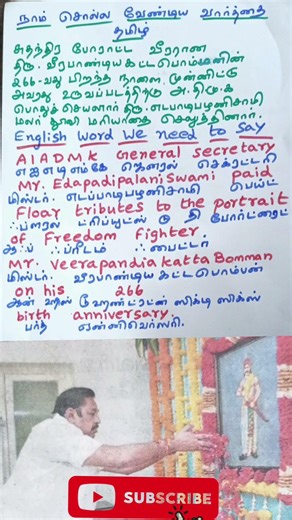 நாம் சொல்ல வேண்டிய வார்த்தை
தமிழ்
சுதந்திர போராட்ட வீரரான
திரு. வீரபாண்டிய கட்டபொம்மனின்
266-வது பிறந்த நாளை முன்னிட்டு
அவரது உருவப்படத்திற்கு அ.தி.மு.க
பொதுச் செயலாளர் திரு. எடப்பாடி பழனிசாமி
மலர் தூவி மரியாதை செலுத்தினார்.
English Word We need to Say
AIADMK General secretary
ஏஐஏடிஎம்கே ஜெனரல் செக்ரட்டரி
Mr. Edapadipalaniswami paid
மிஸ்டர். எடப்பாடிபழனிசாமி பெய்ட்
Floar tributes to the portrait
ஃப்ளாரல் ட்ரிப்யூட்ஸ் டு தி போர்ட்ரைட்
of Freedom Fighter
ஆஃப் ஃப்ரீடம் ஃபைட்டர்
Mr. Veerapandia katta Bomman
மிஸ்டர். வீரபாண்டிய கட்டபொம்மன்
on his 266
ஆன் ஹிஸ் ஹண்ட்ரன் சிக்டி சிக்ஸ்
birth anniversary.
பர்த் ஏன்னிவெர்ஸரி.
SUBSCRIBE